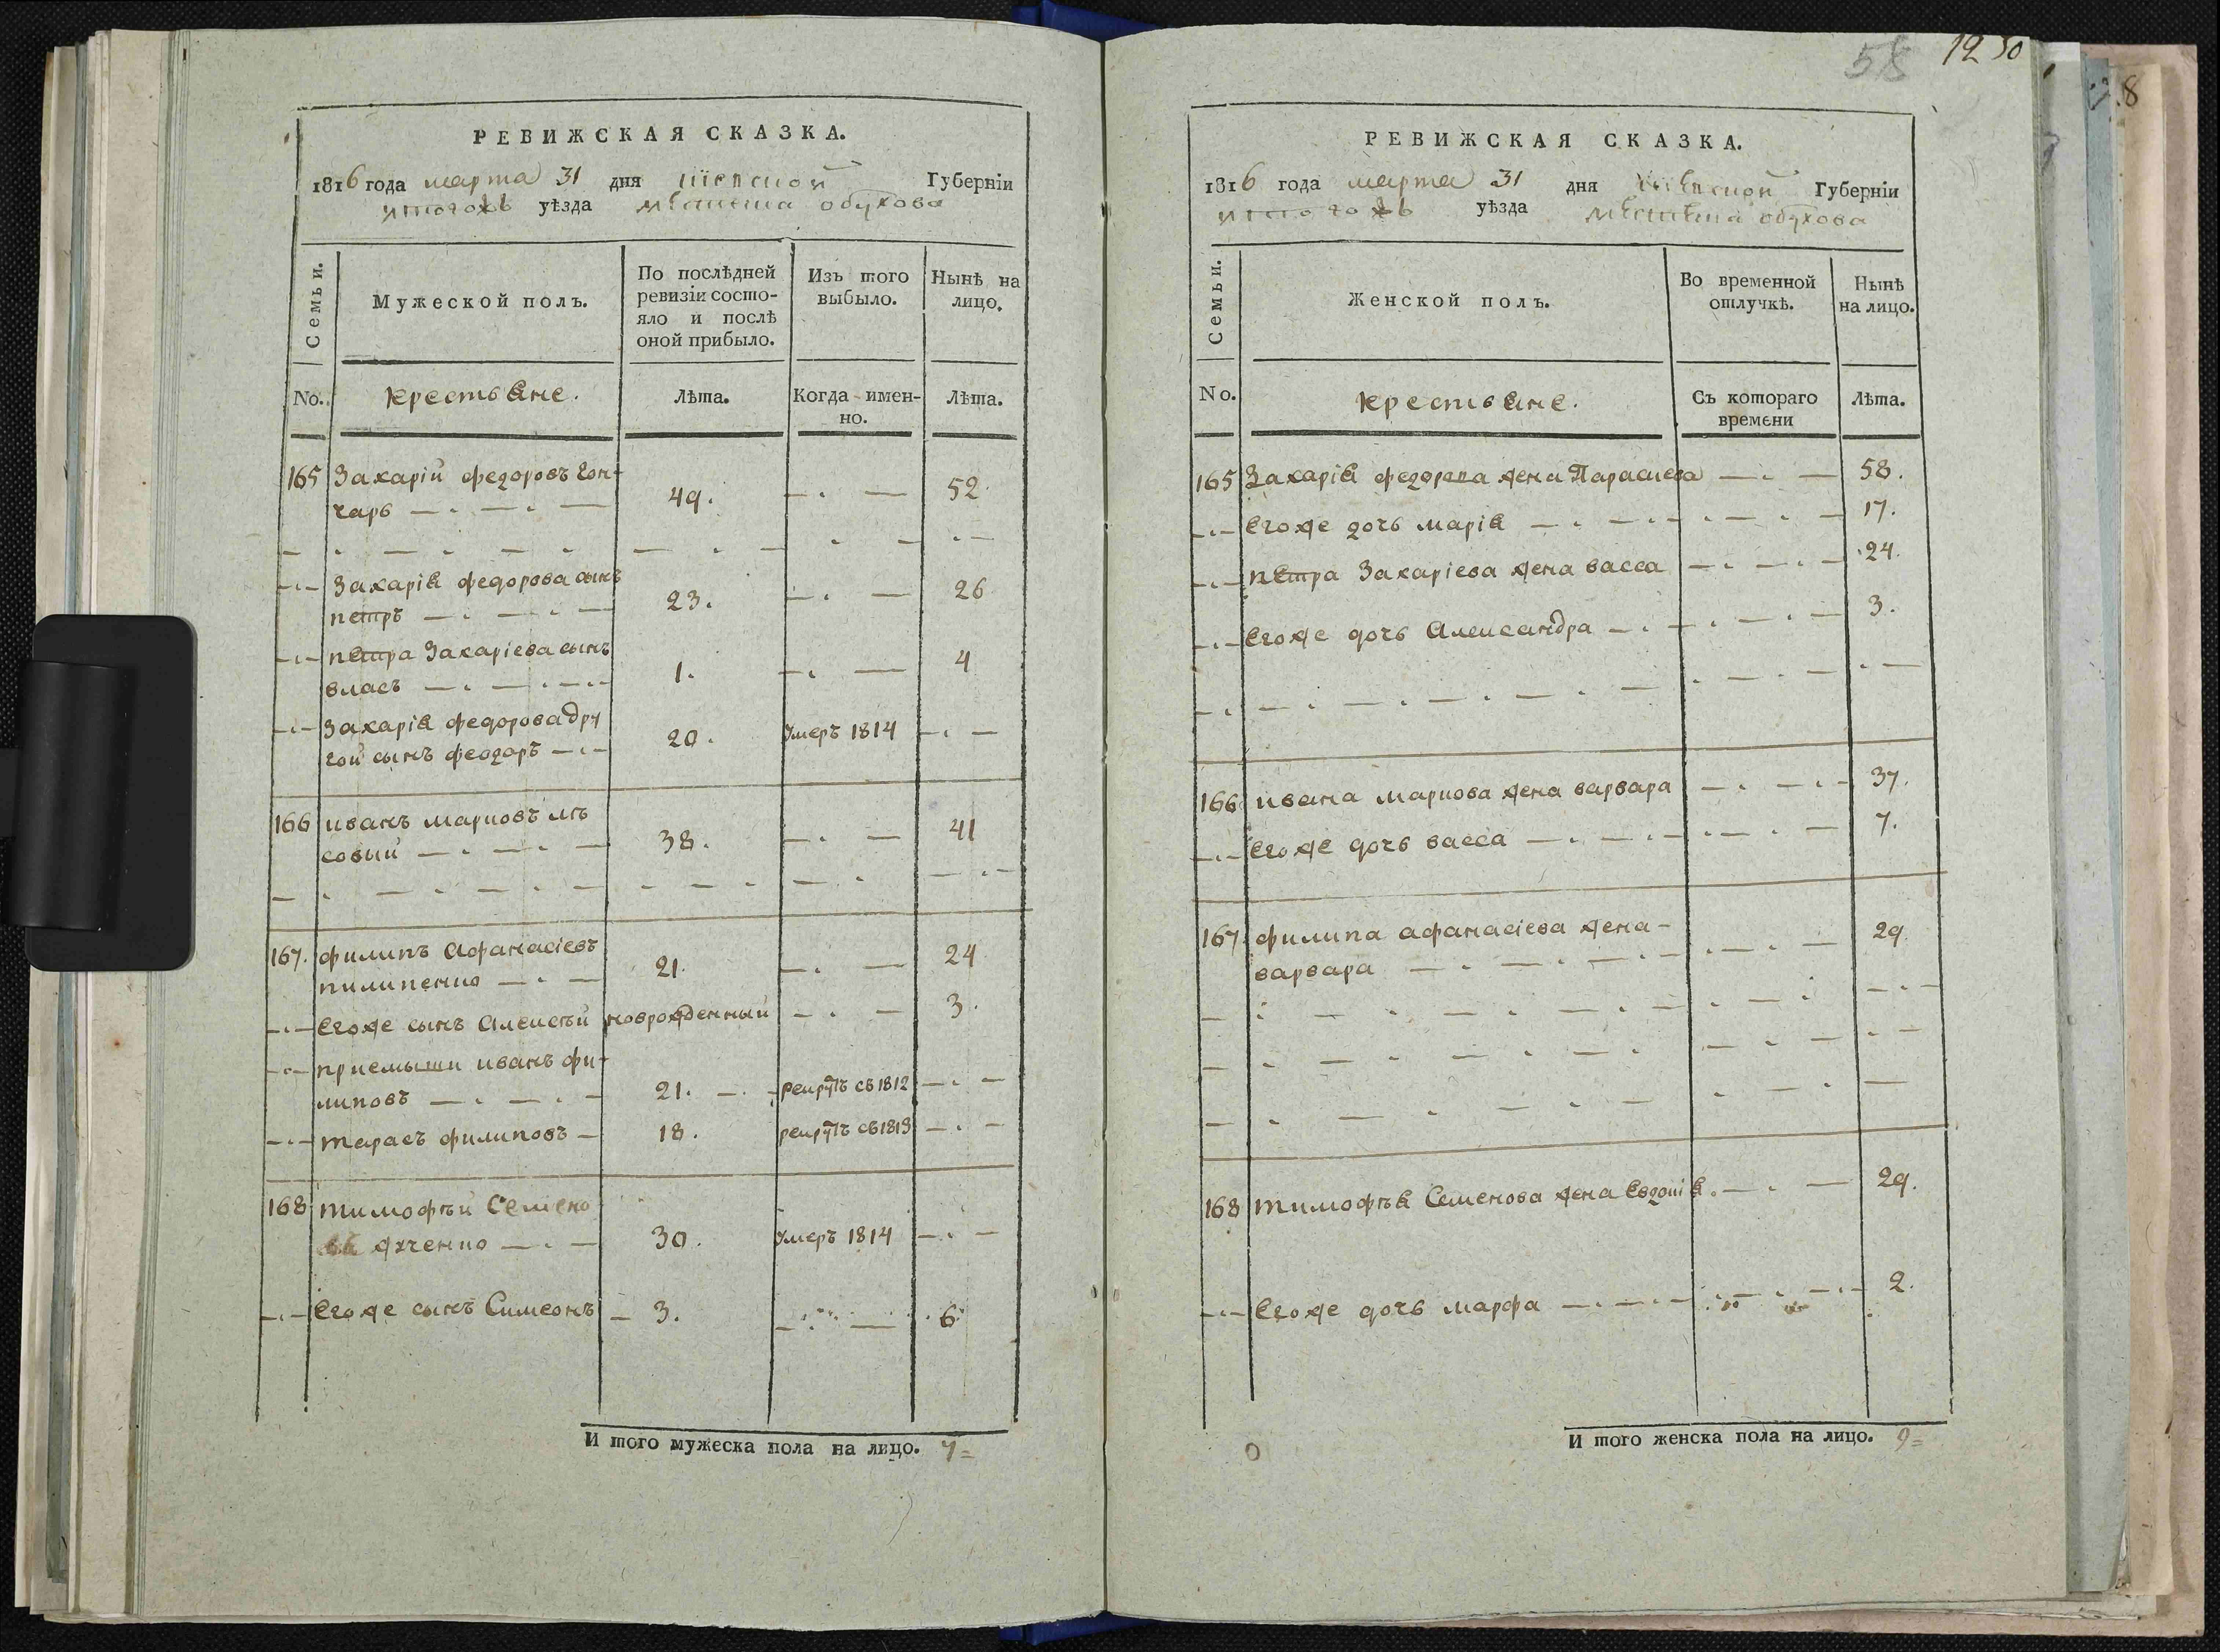 РЕВИЖСКАЯ СКАЗКА.
1816 года марта 31 дня Кіевской Губерніи
уѣзда местечка обухова
Семьи. Мужеской полъ. По послѣдней ревизіи состо-яло и послѣ оной прибыло. Изъ того выбыло. Нынѣ на лицо.
No. крестьяне. Лѣта. Когда имен-но. Лѣта.
165 Захарій федоровъ гон-
чаръ 49. 52
Захарія федорова сынъ
петръ 23. 26
петра Захаріева сынъ
власъ 1. 4
Захарія федорова дру
гой сынъ феодоръ 20. Умеръ 1814
166 иванъ марковъ лѣ
совий 38. 41
167. филипъ Афанасіевъ
пилипенко 21. 24
Егоже сынъ Алексѣй новрожденный 3.
приемыши иванъ фи-
липовъ 21. рекрутъ съ 1812
тарасъ филиповъ 18. рекрутъ съ 1813
168 тимофѣй Семено
30. Умеръ 1814
Егоже сынъ Симеонъ 3. 6
И того мужеска пола на лицо. 7=
58 12 30
РЕВИЖСКАЯ СКАЗКА.
1816 года марта 31 дня Кіевской Губерніи
уѣзда местечка обухова
Семьи. Женской полъ. Во временной отлучкѣ. Нынѣ на лицо.
No. крестьяне. Съ котораго времени Лѣта.
165 Захарія федорова жена Параскева 58.
Егоже дочь марія 17.
петра Захаріева жена васса 24.
Егоже дочь Александра 3.
166 ивана маркова жена варвара 37.
Егоже дочь васса 7.
167. филипа афанасіева жена
варвара 29.
168 тимофѣя Семенова жена Евдокія 29.
Егоже дочь марфа 2.
И того женска пола на лицо. 9=
8